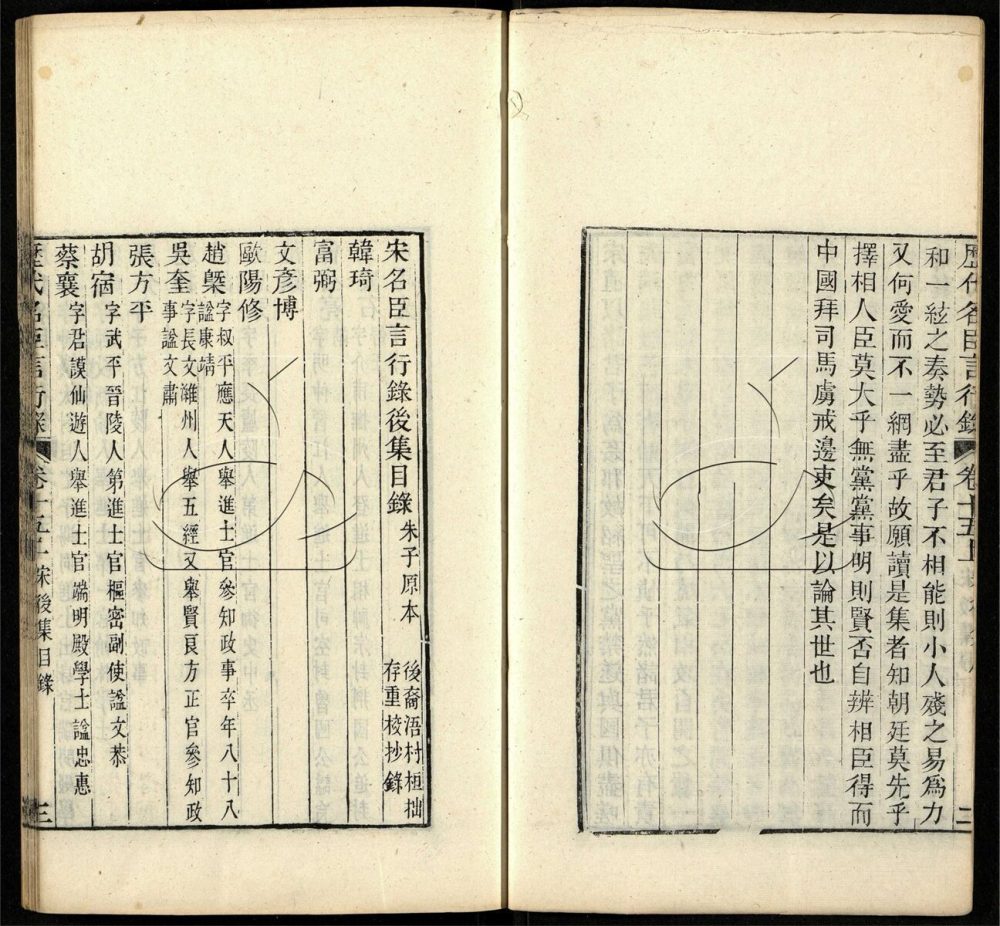 歷代名臣言行錄 卷十五上 二
和一紘之奏勢必至君子不相能則小人殘之易為力
又何愛而不一網盡乎故願讀是集者知朝廷莫先乎
擇相人臣莫大乎無黨黨事明則賢否自辨相臣得而
中國拜司馬虜戒邊吏矣是以論其世也
宋名臣言行錄後集目錄 朱子原本 後裔浯村桓拙存重校抄錄
韓琦
富弼
文彥博
歐陽修
趙槩 字叔平應天人舉進士官參知政事卒年八十八諡康靖
吳奎 字長文濰州人舉五經又舉賢良方正官參知政事諡文肅
張方平
胡宿 字武平晉陵人第進士官樞密副使諡文恭
蔡襄 字君謨仙遊人舉進士官端明殿學士諡忠惠
歷代名臣言行錄 卷十五上 宋後集目錄 三